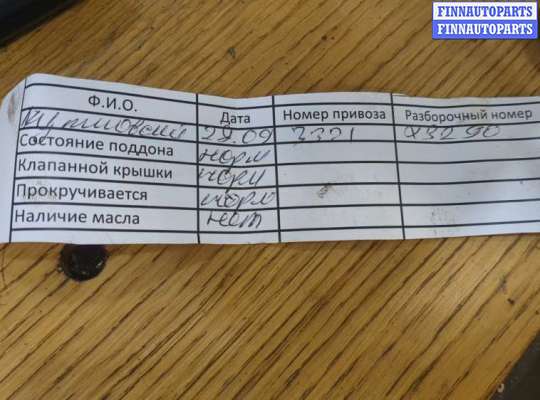 FINNAUTOPARTS
FINNAUTOPARTS
Ф.И.О. Дата Номер привоза Разборочный номер
28.09 3321
Состояние поддона норм
Клапанной крышки норм
Прокручивается норм
Наличие масла нет